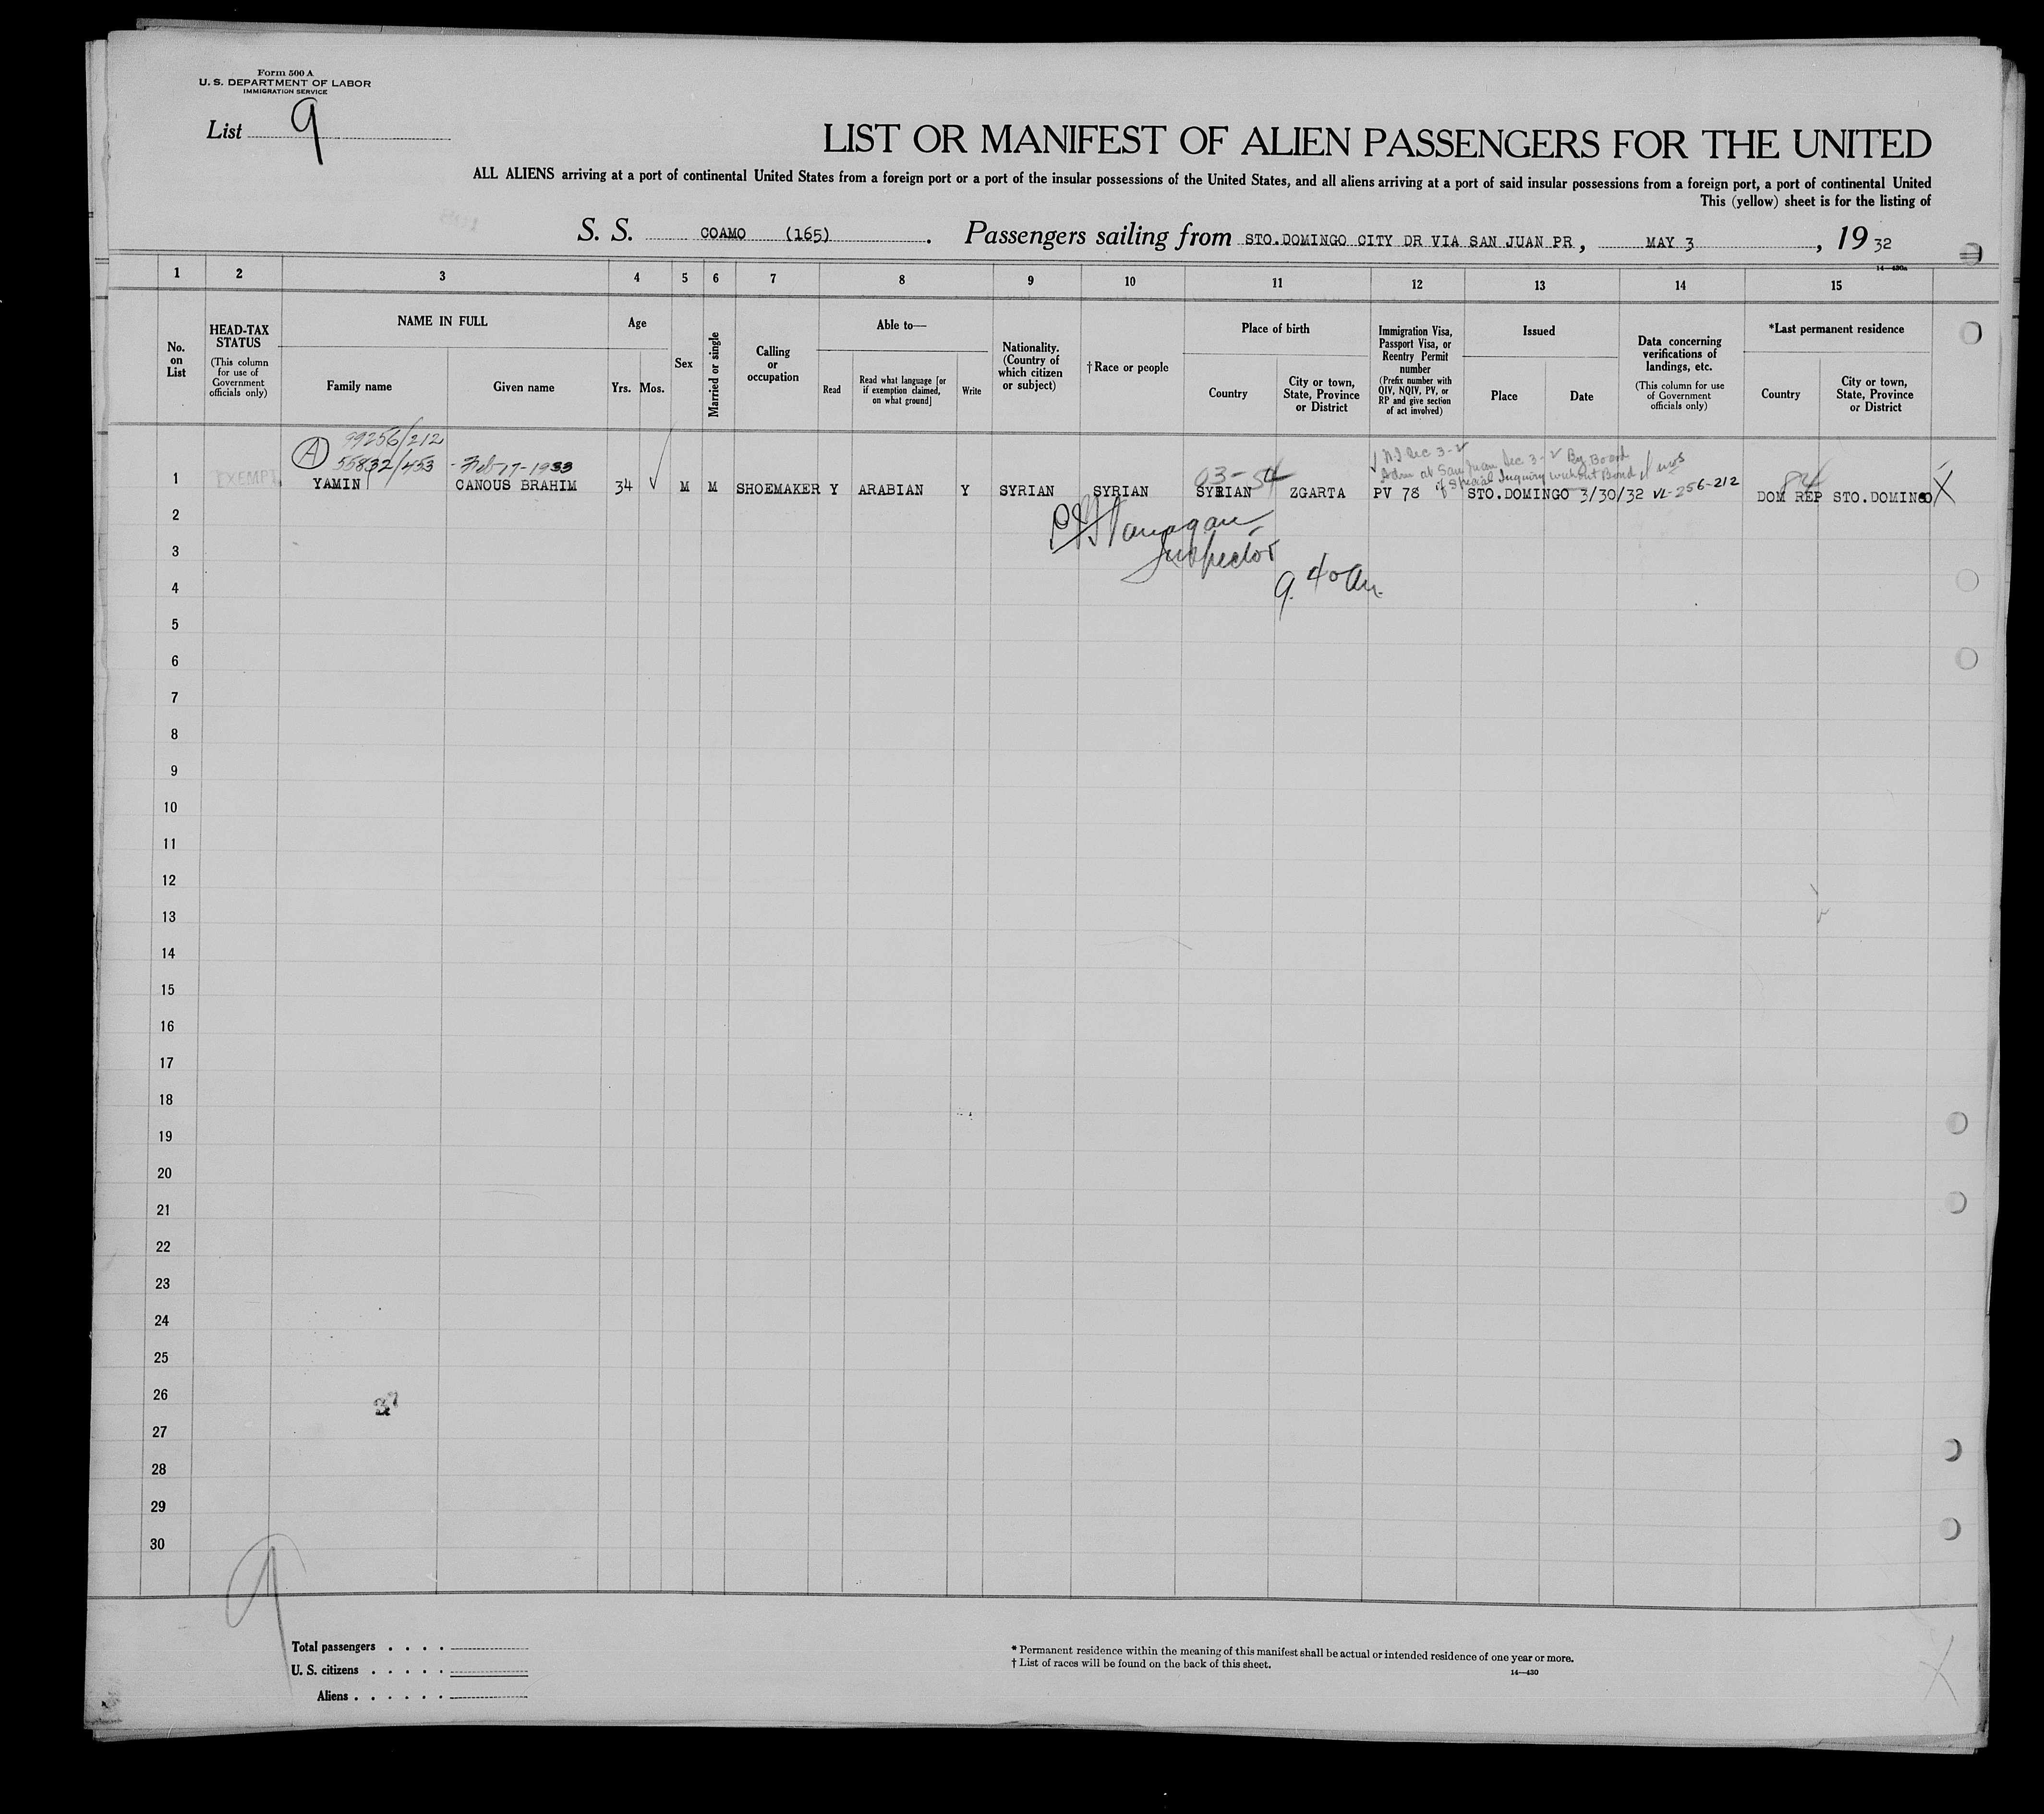 Form 500 A
U. S. DEPARTMENT OF LABOR
IMMIGRATION SERVICE
List 9
LIST OR MANIFEST OF ALIEN PASSENGERS FOR THE UNITED
ALL ALIENS arriving at a port of continental United States from a foreign port or a port of the insular possessions of the United States, and all aliens arriving at a port of said insular possessions from a foreign port, a port of continental United
This (yellow) sheet is for the listing of
S. S. COAMO (165). Passengers sailing from STO.DOMINGO CITY DR VIA SAN JUAN PR, MAY 3, 19 32
14—430a
1 2 3 4 5 6 7 8 9 10 11 12 13 14 15
No. on List
HEAD-TAX STATUS
(This column for use of Government officials only)
NAME IN FULL
Family name
Given name
Age
Yrs. Mos.
Sex
Married or single
Calling or occupation
Able to—
Read
Read what language [or if exemption claimed, on what ground]
Write
Nationality. (Country of which citizen or subject)
†Race or people
Place of birth
Country
City or town, State, Province or District
Immigration Visa, Passport Visa, or Reentry Permit number
(Prefix number with QIV, NQIV, PV, or RP and give section of act involved)
Issued
Place
Date
Data concerning verifications of landings, etc.
(This column for use of Government officials only)
*Last permanent residence
Country
City or town, State, Province or District
A 99256/212
55832/453 - Feb 17-1933
N.I Sec 3-2
Adm at San Juan Sec 3-2 By Board
of Special Inquiry without Bond
03-54
84
1 EXEMPT YAMIN CANOUS BRAHIM 34 M M SHOEMAKER Y ARABIAN Y SYRIAN SYRIAN SYRIAN ZGARTA PV 78 STO.DOMINGO 3/30/32 VL-256-212 DOM REP STO.DOMINGO X
2
Inspector
3
9.40 am.
4
5
6
7
8
9
10
11
12
13
14
15
16
17
18
19
20
21
22
23
24
25
26
27
28
29
30
9
Total passengers . . . .
U. S. citizens . . . . .
Aliens . . . . . .
* Permanent residence within the meaning of this manifest shall be actual or intended residence of one year or more.
† List of races will be found on the back of this sheet.
14—430
X